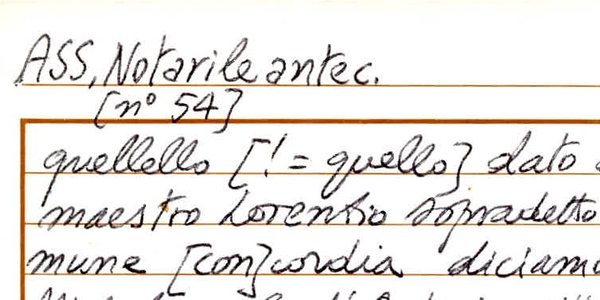 ASS, Notarile antec.
[nº 54]
quellello [! = quello] dato
maestro Lorentio sopradetto
mune [con]cordia diciamo